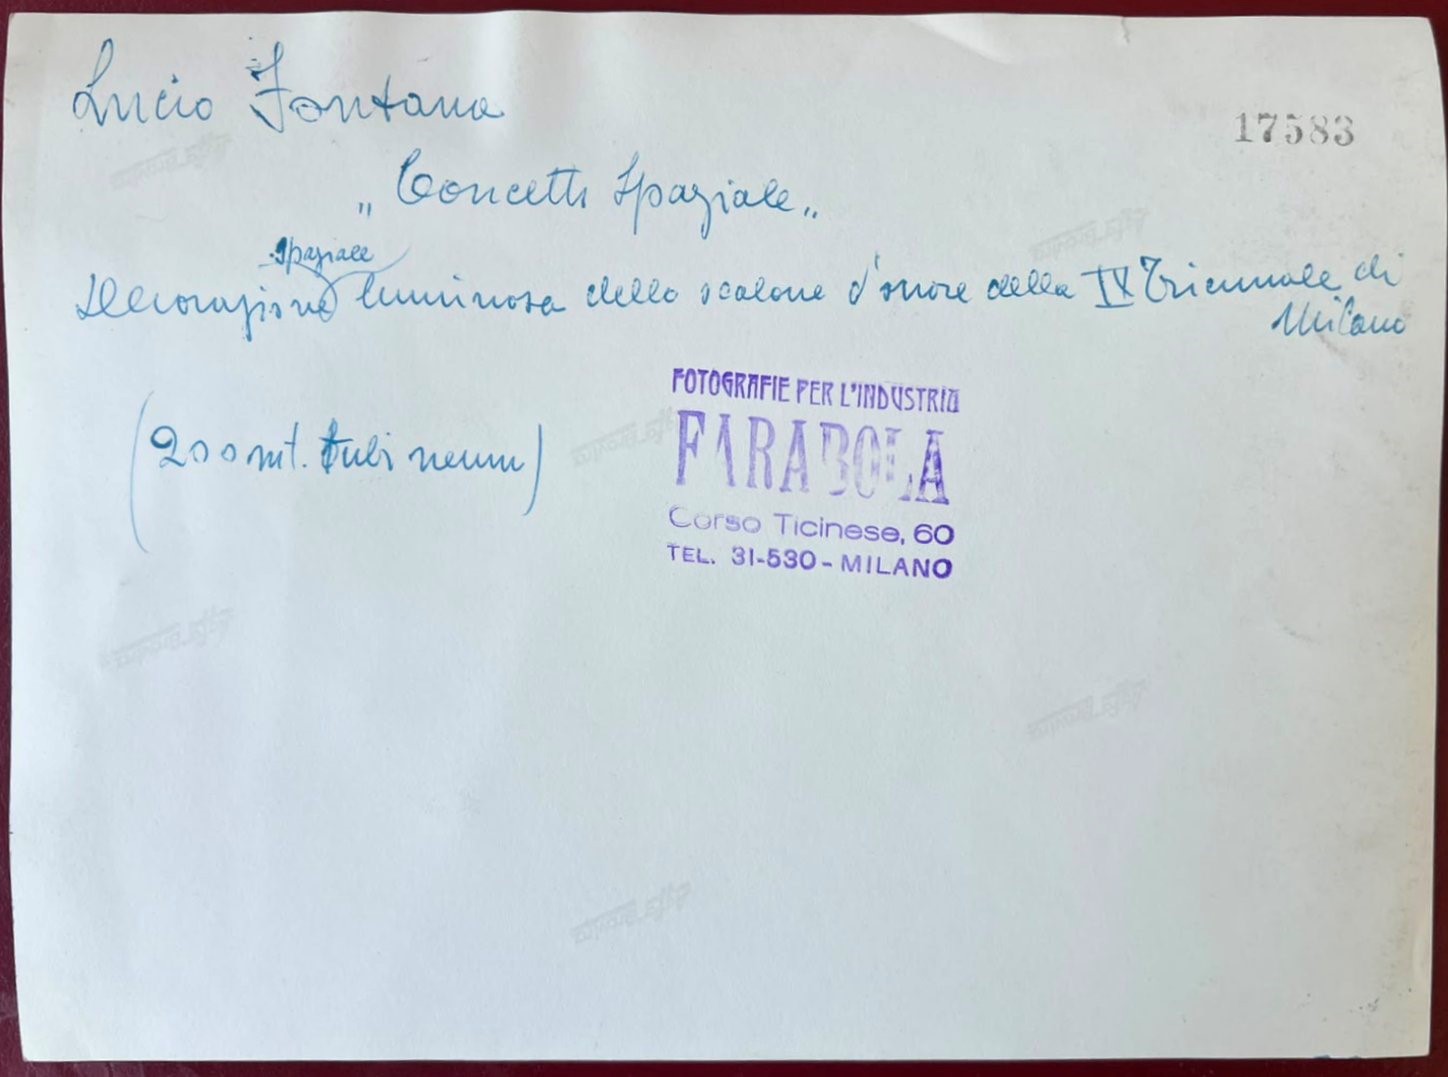 Lucio Fontana
17583
„Concetti Spaziale„
spaziale
Decorazione luminosa dello scalone d'onore della IX Triennale di
Milano
(200 mt. tubi neum)
FOTOGRAFIE PER L'INDUSTRIA
FARABOLA
Corso Ticinese, 60
TEL. 31-530 - MILANO